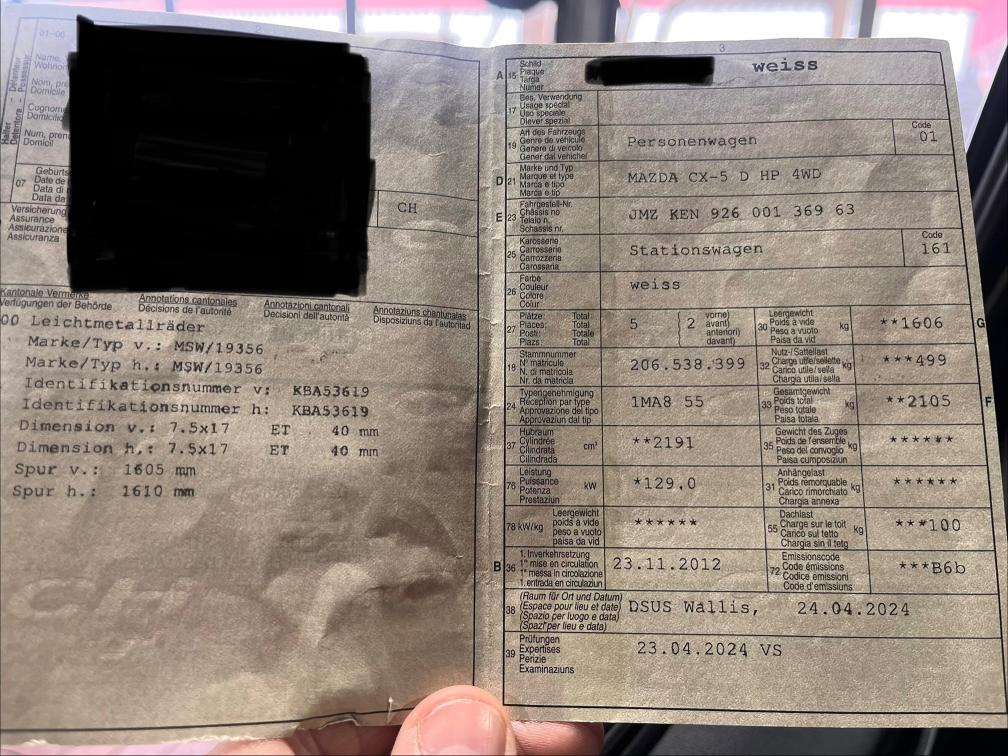 01-00
2
Name,
Wohnor
Nom, pré
Domicile
Cognome
Domicilio
Num, pren
Domicil
Halter
Détenteur
Detentore
Possessur
07
Geburts
Date de
Data di
Data da
CH
Versicherung
Assurance
Assicurazione
Assicuranza
Kantonale Vermerke
Verfügungen der Behörde
Annotations cantonales
Décisions de l'autorité
Annotazioni cantonali
Decisioni dell'autorità
Annotaziuns chantunalas
Disposiziuns da l'autoritad
00 Leichtmetallräder
Marke/Typ v.: MSW/19356
Marke/Typ h.: MSW/19356
Identifikationsnummer v: KBA53619
Identifikationsnummer h: KBA53619
Dimension v.: 7.5x17 ET 40 mm
Dimension h.: 7.5x17 ET 40 mm
Spur v.: 1605 mm
Spur h.: 1610 mm
3
A 15
Schild
Plaque
Targa
Numer
weiss
17
Bes. Verwendung
Usage spécial
Uso speciale
Diever spezial
19
Art des Fahrzeugs
Genre de véhicule
Genere di veicolo
Gener dal vehichel
Personenwagen
Code
01
D 21
Marke und Typ
Marque et type
Marca e tipo
Marca e tip
MAZDA CX-5 D HP 4WD
E 23
Fahrgestell-Nr.
Châssis no
Telaio n.
Schassis nr.
JMZ KEN 926 001 369 63
25
Karosserie
Carrosserie
Carrozzeria
Carossaria
Stationswagen
Code
161
26
Farbe
Couleur
Colore
Colur
weiss
27
Plätze: Total
Places: Total
Posti: Totale
Plazs: Total
5 ( 2
vorne)
avant)
anteriori)
davant)
30
Leergewicht
Poids à vide
Peso a vuoto
Paisa da vid
kg
**1606
G
18
Stammnummer
N° matricule
N. di matricola
Nr. da matricla
206.538.399
32
Nutz-/Sattellast
Charge utile/sellette
Carico utile/sella
Chargia utila/sella
kg
***499
24
Typengenehmigung
Réception par type
Approvazione del tipo
Approvaziun dal tip
1MA8 55
33
Gesamtgewicht
Poids total
Peso totale
Paisa totala
kg
**2105
F
37
Hubraum
Cylindrée
Cilindrata
Cilindrada
cm³
**2191
35
Gewicht des Zuges
Poids de l'ensemble
Peso del convoglio
Paisa cumposiziun
kg
******
76
Leistung
Puissance
Potenza
Prestaziun
kW
*129.0
31
Anhängelast
Poids remorquable
Carico rimorchiato
Chargia annexa
kg
******
78 kW/kg
Leergewicht
poids à vide
peso a vuoto
paisa da vid
******
55
Dachlast
Charge sur le toit
Carico sul tetto
Chargia sin il tetg
kg
***100
B 36
1. Inverkehrsetzung
1re mise en circulation
1a messa in circolazione
1. entrada en circulaziun
23.11.2012
72
Emissionscode
Code émissions
Codice emissioni
Code d'emissiuns
***B6b
38
(Raum für Ort und Datum)
(Espace pour lieu et date)
(Spazio per luogo e data)
(Spazi per lieu e data)
DSUS Wallis, 24.04.2024
39
Prüfungen
Expertises
Perizie
Examinaziuns
23.04.2024 VS